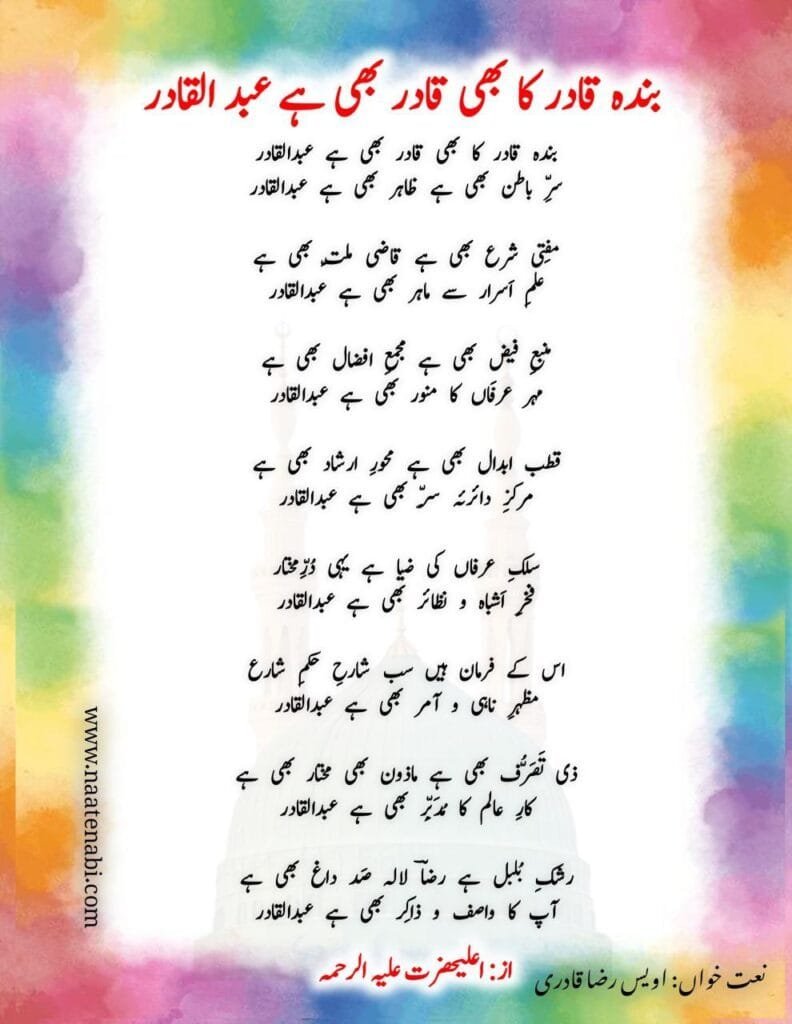 بندہ قادر کا بھی قادر بھی ہے عبد القادر
بندہ قادر کا بھی قادر بھی ہے عبدالقادر
سرِّ باطن بھی ہے ظاہر بھی ہے عبدالقادر
مفتِی شرع بھی ہے قاضی ملت بھی ہے
علمِ اَسرار سے ماہر بھی ہے عبدالقادر
منبعِ فیض بھی ہے مجمعِ افضال بھی ہے
مہرِ عرفاں کا منور بھی ہے عبدالقادر
قطب ابدال بھی ہے محورِ ارشاد بھی ہے
مرکزِ دائرئہ سرّ بھی ہے عبدالقادر
سلکِ عرفاں کی ضیا ہے یہی دُرِّمختار
فخرِ اَشباہ و نظائر بھی ہے عبدالقادر
اس کے فرمان ہیں سب شارحِ حکمِ شارع
مظہرِ ناہی و آمر بھی ہے عبدالقادر
ذی تَصَرُّف بھی ہے ماذون بھی مختار بھی ہے
کارِ عالم کا مُدَبِّر بھی ہے عبدالقادر
رشکِ بُلبل ہے رضاؔ لالہ صَد داغ بھی ہے
آپ کا واصف و ذاکِر بھی ہے عبدالقادر
از: اعلیحضرت علیہ الرحمہ
نعت خواں: اویس رضا قادری
www.naatenabi.com